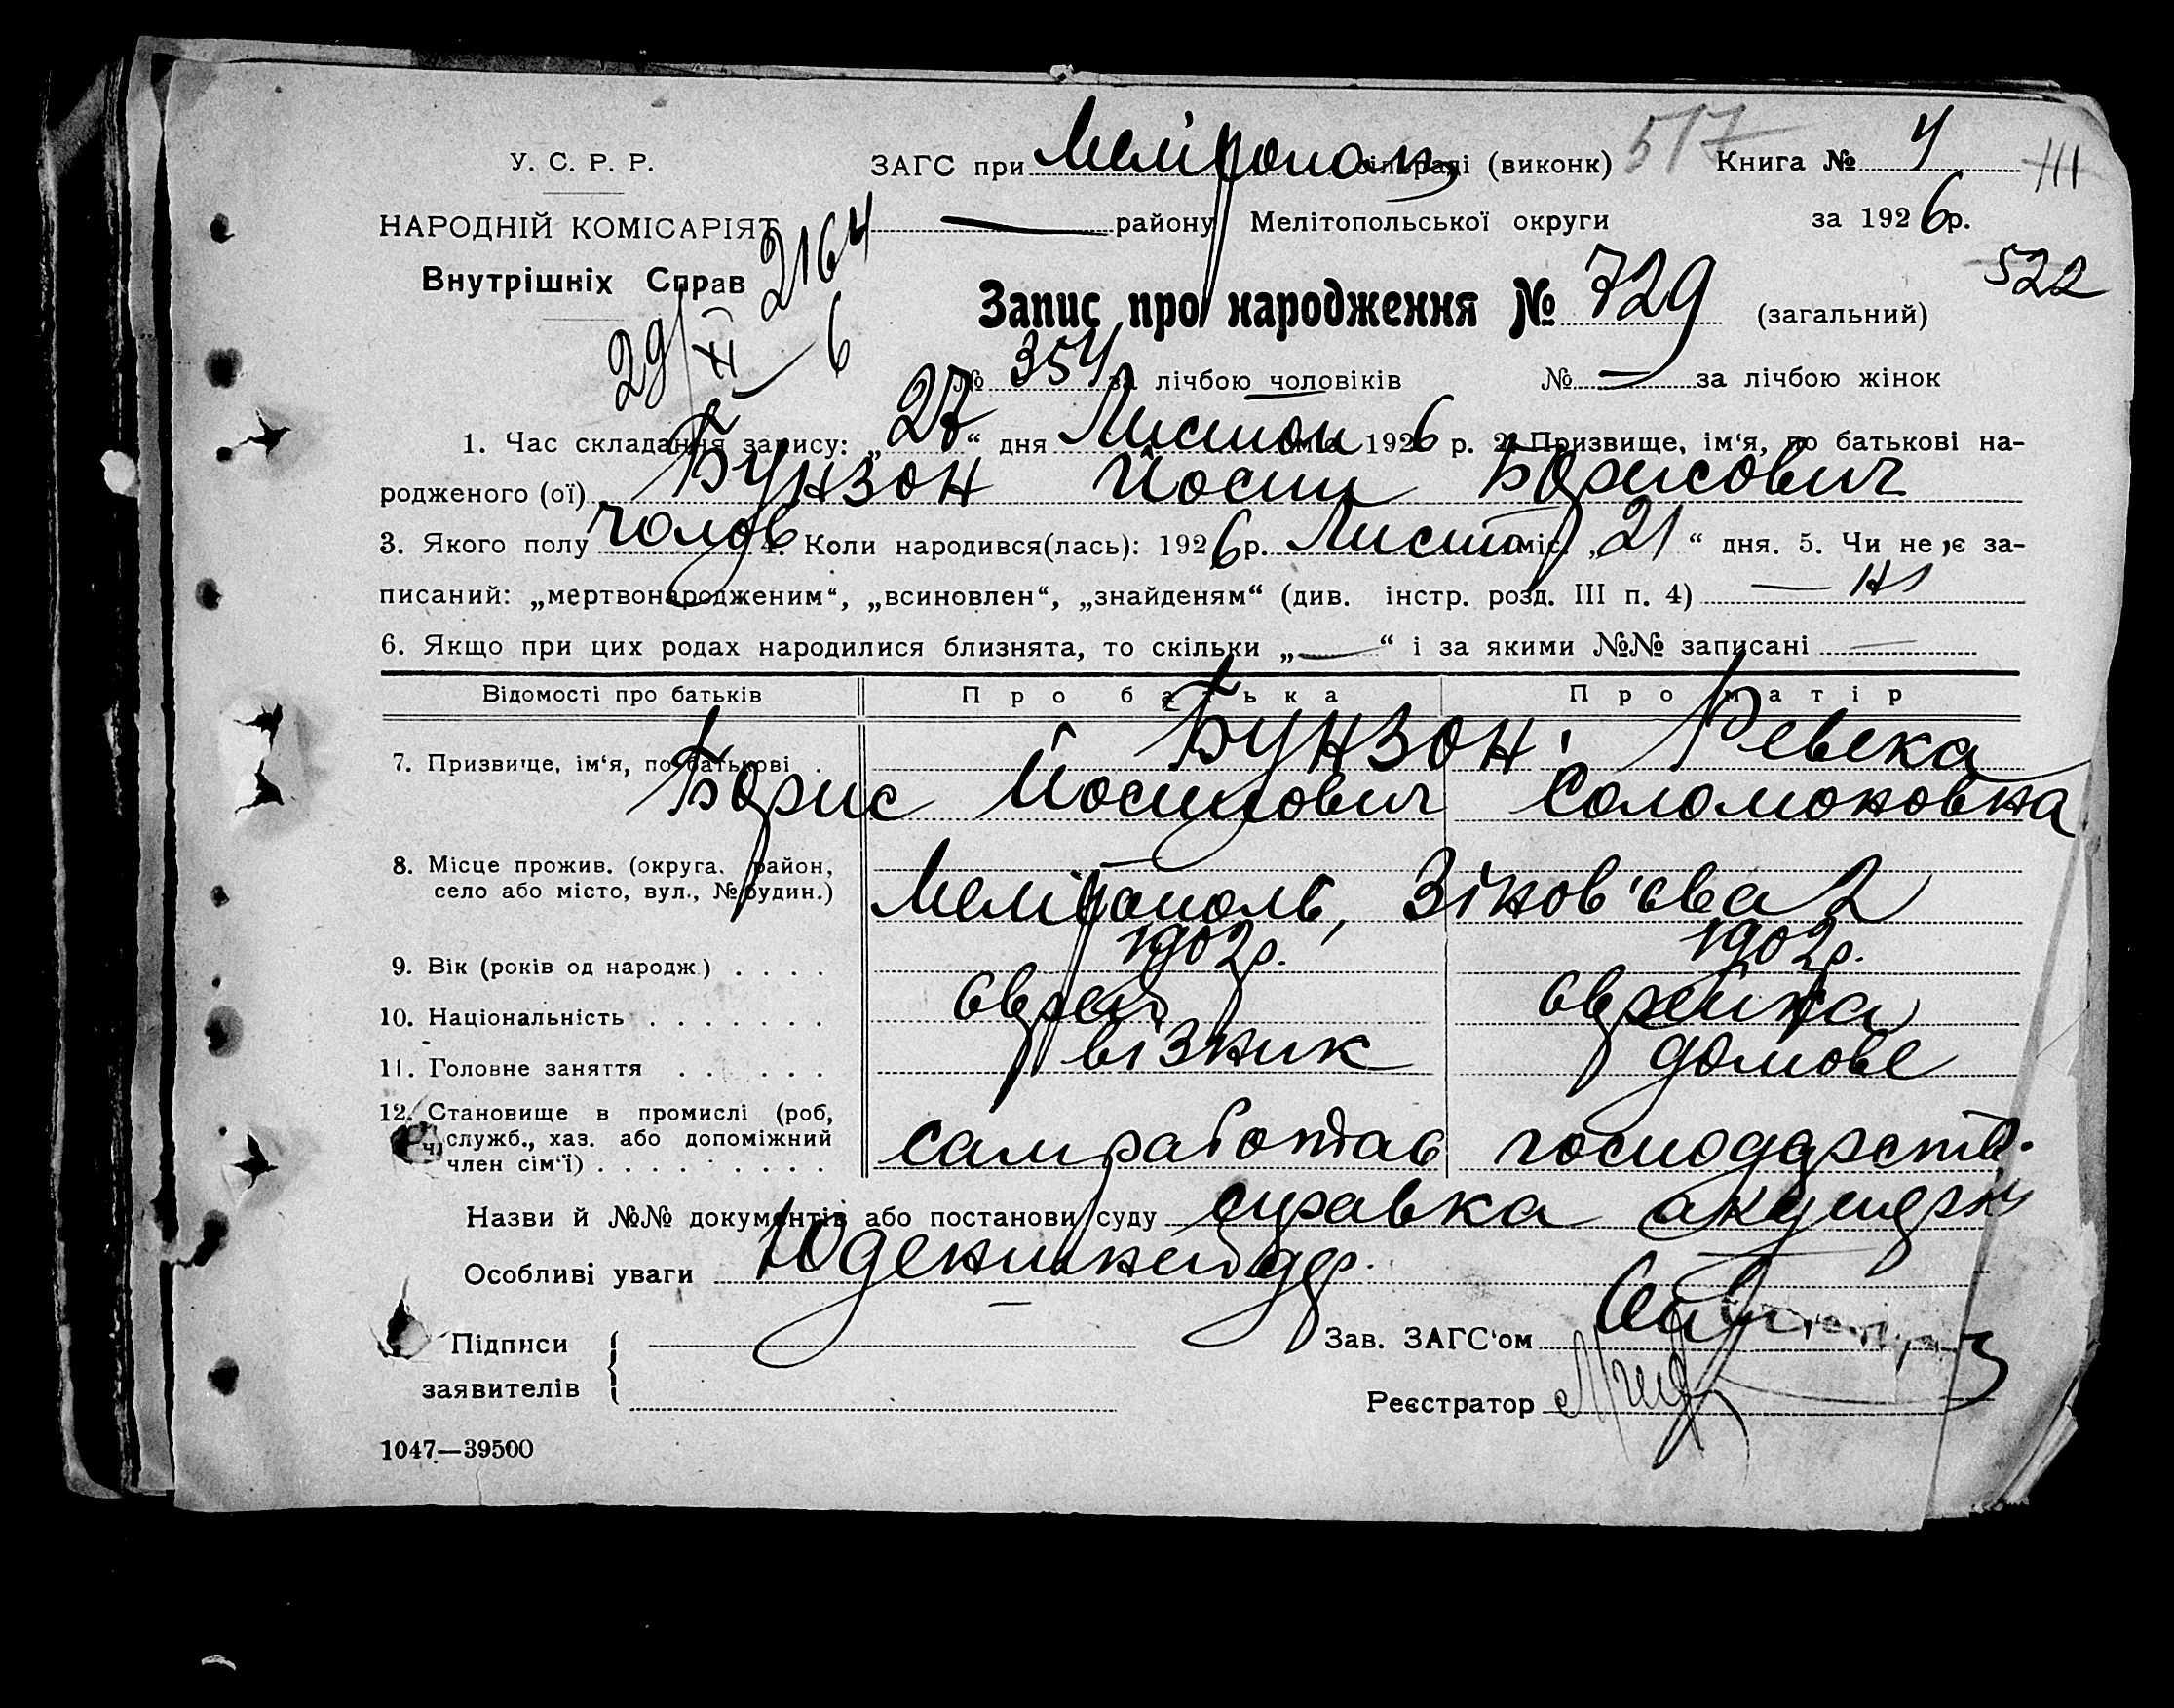 У. С. Р. Р.
НАРОДНІЙ КОМІСАРІЯТ
Внутрішніх Справ
2164
29/XI 6
ЗАГС при Мелітополь сільраді (виконк) 517 Книга № 4 III
— району Мелітопольської округи за 1926 р.
522
Запис про народження № 729 (загальний)
№ 354 за лічбою чоловіків № — за лічбою жінок
1. Час складання запису: „27“ дня Листоп міс. 1926 р. 2. Призвище, ім‘я, по батькові на-
родженого (ої) Бунзон Йосип Борисович
3. Якого полу чолов 4. Коли народився(лась): 1926 р. Листоп міс. „21“ дня. 5. Чи не є за-
писаний: „мертвонародженим“, „всиновлен“, „знайденям“ (див. інстр. розд. III п. 4) — ні
6. Якщо при цих родах народилися близнята, то скільки „—“ і за якими №№ записані —
Відомості про батьків Про батька Про матір
7. Призвище, ім‘я, по батькові . Бунзон Ревека
Борис Йосипович Соломоновна
8. Місце прожив. (округа, район,
село або місто, вул., № будин.) Мелітополь, Зінов'єва 2
9. Вік (років од народж.) . . . . 1902р. 1902р.
10. Національність . . . . . . . єврей єврейка
11. Головне заняття . . . . . . візник домове
12. Становище в промислі (роб,
служб., хаз. або допоміжний
член сім‘ї) . . . . . . . . . сам работав господарств.
Назви й №№ документів або постанови суду справка акушерки
Особливі уваги
Підписи
заявителів
Зав. ЗАГС‘ом
Реєстратор
1047—39500